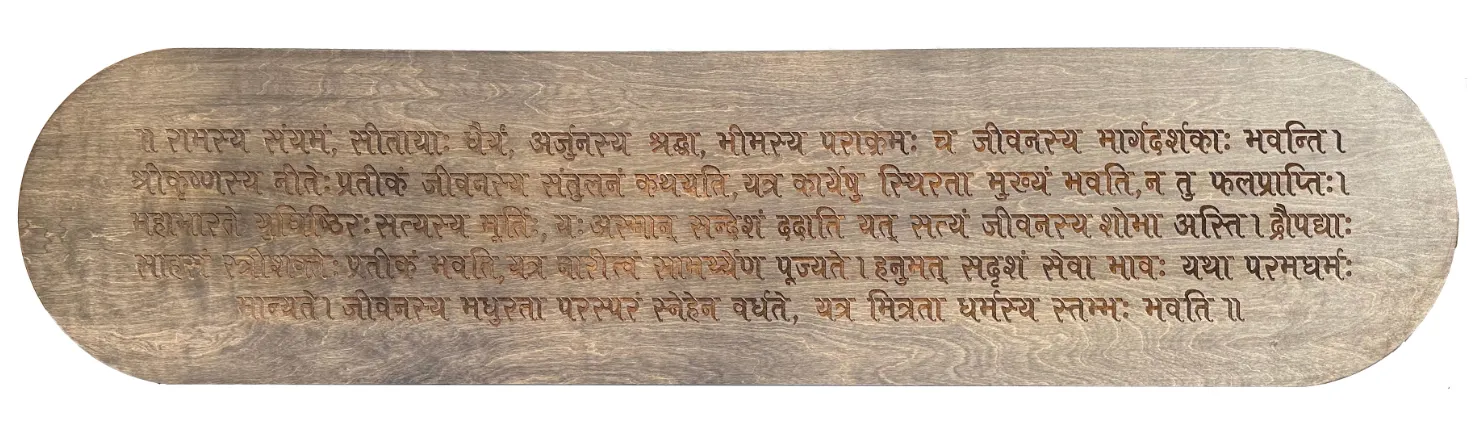 ॥ रामस्य संयमं, सीतायाः धैर्यं, अर्जुनस्य श्रद्धा, भीमस्य पराक्रमः च जीवनस्य मार्गदर्शकाः भवन्ति।
श्रीकृष्णस्य नीतेः प्रतीकं जीवनस्य संतुलनं कथयति, यत्र कार्येषु स्थिरता मुख्यं भवति, न तु फलप्राप्तिः।
महाभारते युधिष्ठिरः सत्यस्य मूर्तिः, यः अस्मान् सन्देशं ददाति यत् सत्यं जीवनस्य शोभा अस्ति। द्रौपद्याः
साहसं स्त्रीशक्तेः प्रतीकं भवति, यत्र नारीत्वं सामर्थ्येण पूज्यते। हनुमत् सदृशं सेवा भावः यथा परमधर्मः
मान्यते। जीवनस्य मधुरता परस्परं स्नेहेन वर्धते, यत्र मित्रता धर्मस्य स्तम्भः भवति ॥